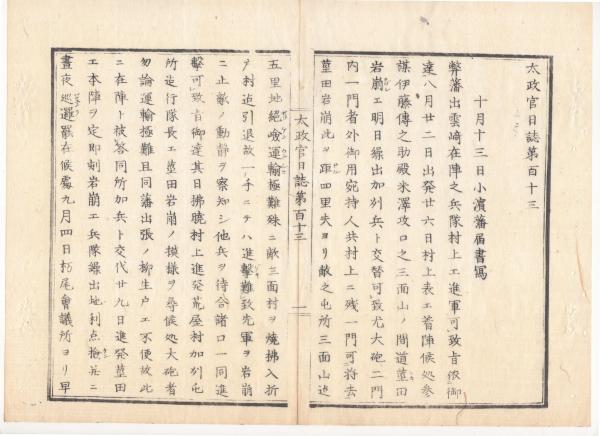 太政官日誌第百十三
十月十三日小濱藩届書寫
弊藩出雲﨑在陣之兵隊村上エ進軍可致旨依御
達八月廿二日出発廿六日村上表エ着陣候処参
謀伊藤傳之助殿米澤攻口之三面山ノ間道田
岩崩エ明日繰出加刕兵ト交替可致尤大砲二門
内一門者外御用宛持人共村上ニ残一門可将去
田岩崩此ヲ距四里失ヨリ敵之屯所三面山迠
太政官日誌第百十三
一
五里地絶嶮運輸極難殊ニ敵三面村ヲ燒拂入折
ヲ村迠引退故一手ニテハ進撃難致先軍ヲ岩崩
ニ止敵ノ動静ヲ察知シ他兵ヲ待合諸口一同進
撃可致旨御達其日拂曉村上進発荒屋村加刕屯
所迠行隊長エ田岩崩ノ模様ヲ尋候処大砲者
勿論運輸極難且同藩出張ノ柳生戸エ不便故此
ニ在陣ト被答同所加兵ト交代廿九日進発田
エ本陣ヲ定即刻岩崩エ兵隊繰出地利点撿并ニ
晝夜巡邏嚴在候處九月四日朽尾會議所ヨリ早